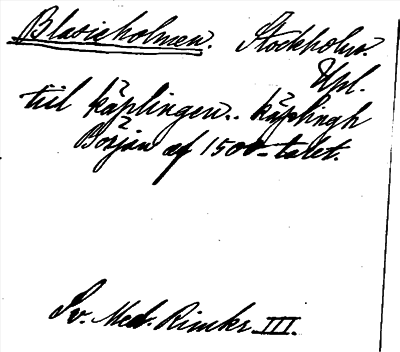 Blasieholmen. Stockholm.
Upl.
till käplingen.. käplingh
Början af 1500-talet.
Sv. Med. Rimkr. III.